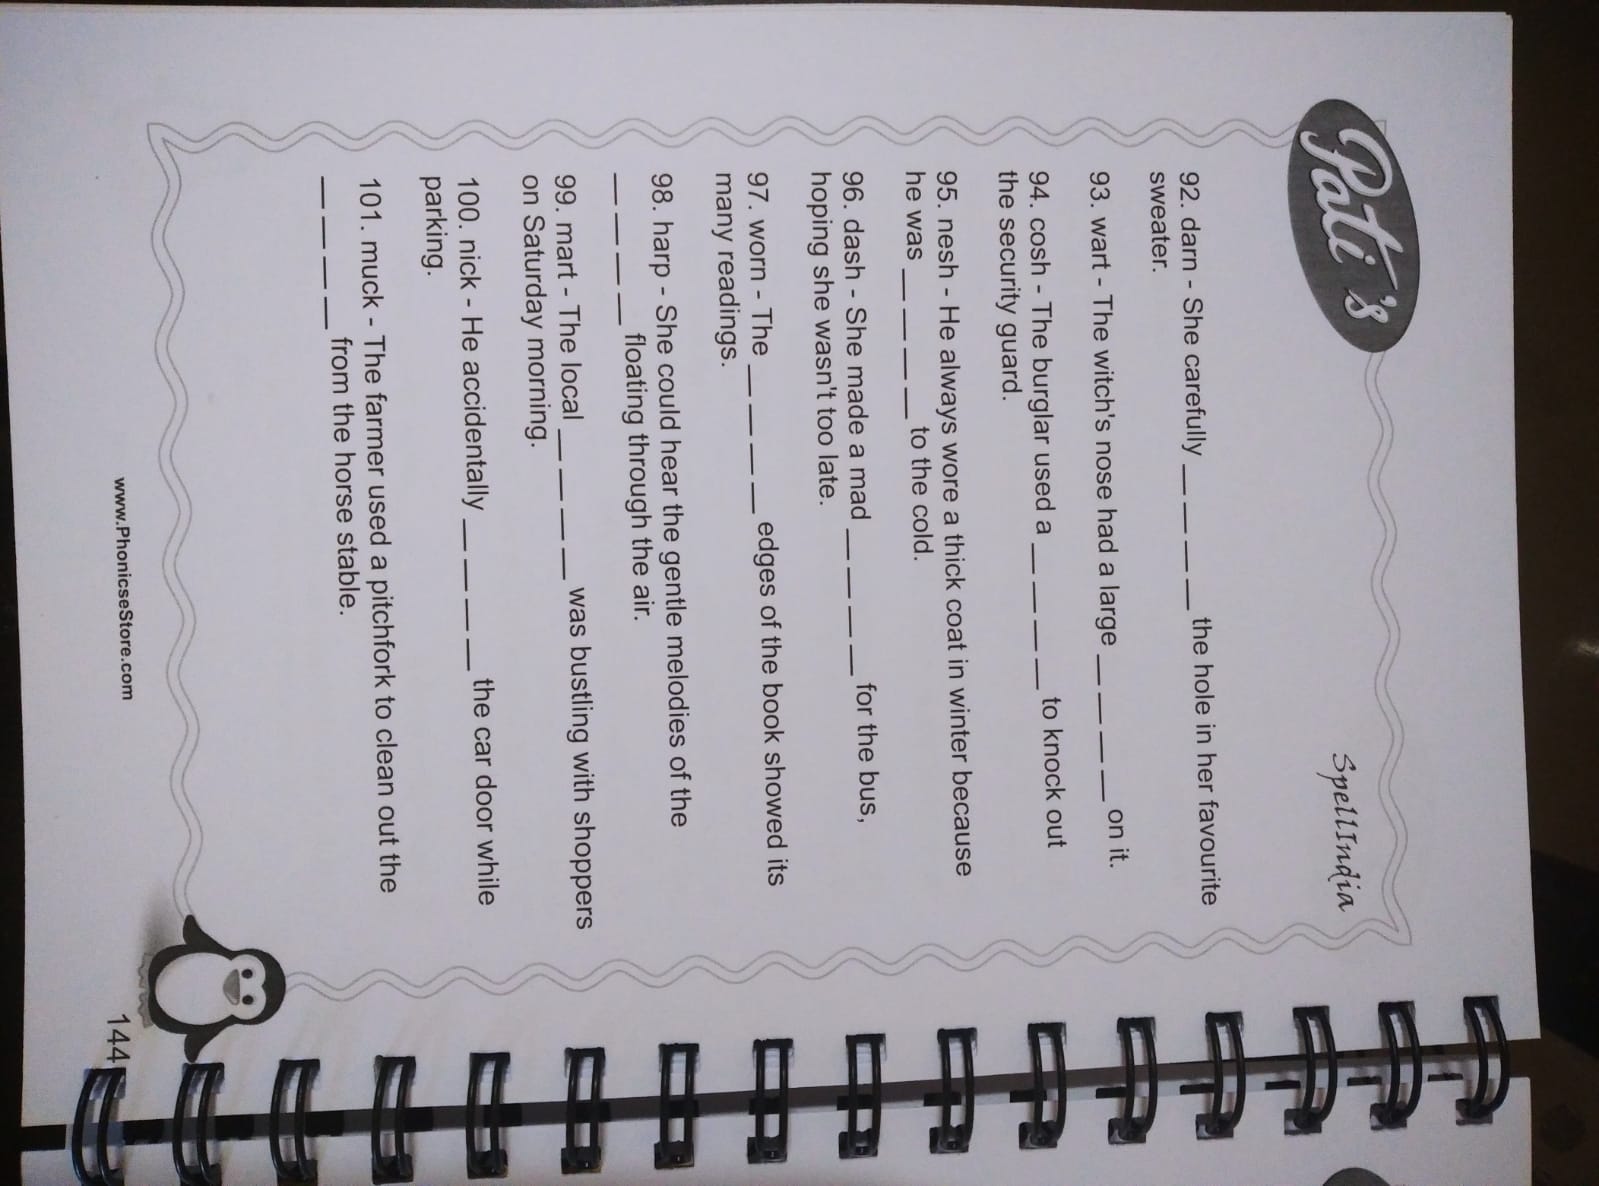 Pati's
SpellIndia
92. darn - She carefully _ _ _ _ _ the hole in her favourite
sweater.
93. wart - The witch's nose had a large _ _ _ _ _ on it.
94. cosh - The burglar used a _ _ _ _ _ to knock out
the security guard.
95. nesh - He always wore a thick coat in winter because
he was _ _ _ _ _ to the cold.
96. dash - She made a mad _ _ _ _ _ for the bus,
hoping she wasn't too late.
97. worn - The _ _ _ _ _ edges of the book showed its
many readings.
98. harp - She could hear the gentle melodies of the
_ _ _ _ floating through the air.
99. mart - The local _ _ _ _ _ was bustling with shoppers
on Saturday morning.
100. nick - He accidentally _ _ _ _ _ the car door while
parking.
101. muck - The farmer used a pitchfork to clean out the
_ _ _ _ from the horse stable.
www.PhonicseStore.com
144